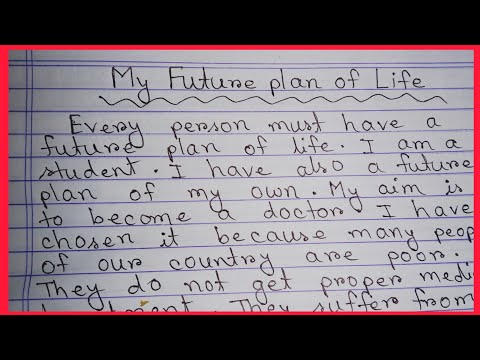 My Future plan of Life
Every person must have a
future plan of life. I am a
student. I have also a future
plan of my own. My aim is
to become a doctor. I have
chosen it because many peop
of our country are poor.
They do not get proper medi
They suffer from